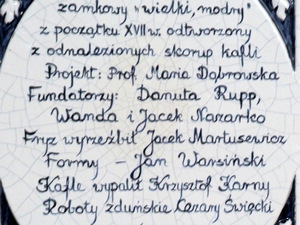 zamkowy „wielki, modry"
z początku XVII w. odtworzony
z odnalezionych skorup kafli
Projekt: Prof. Maria Dąbrowska
Fundatorzy: Danuta Rupp,
Wanda i Jacek Nazarko
Fryz wyrzeźbił Jacek Martusewicz
Formy – Jan Warsiński
Kafle wypalił Krzysztof Karny
Roboty zduńskie Cezary Święcki